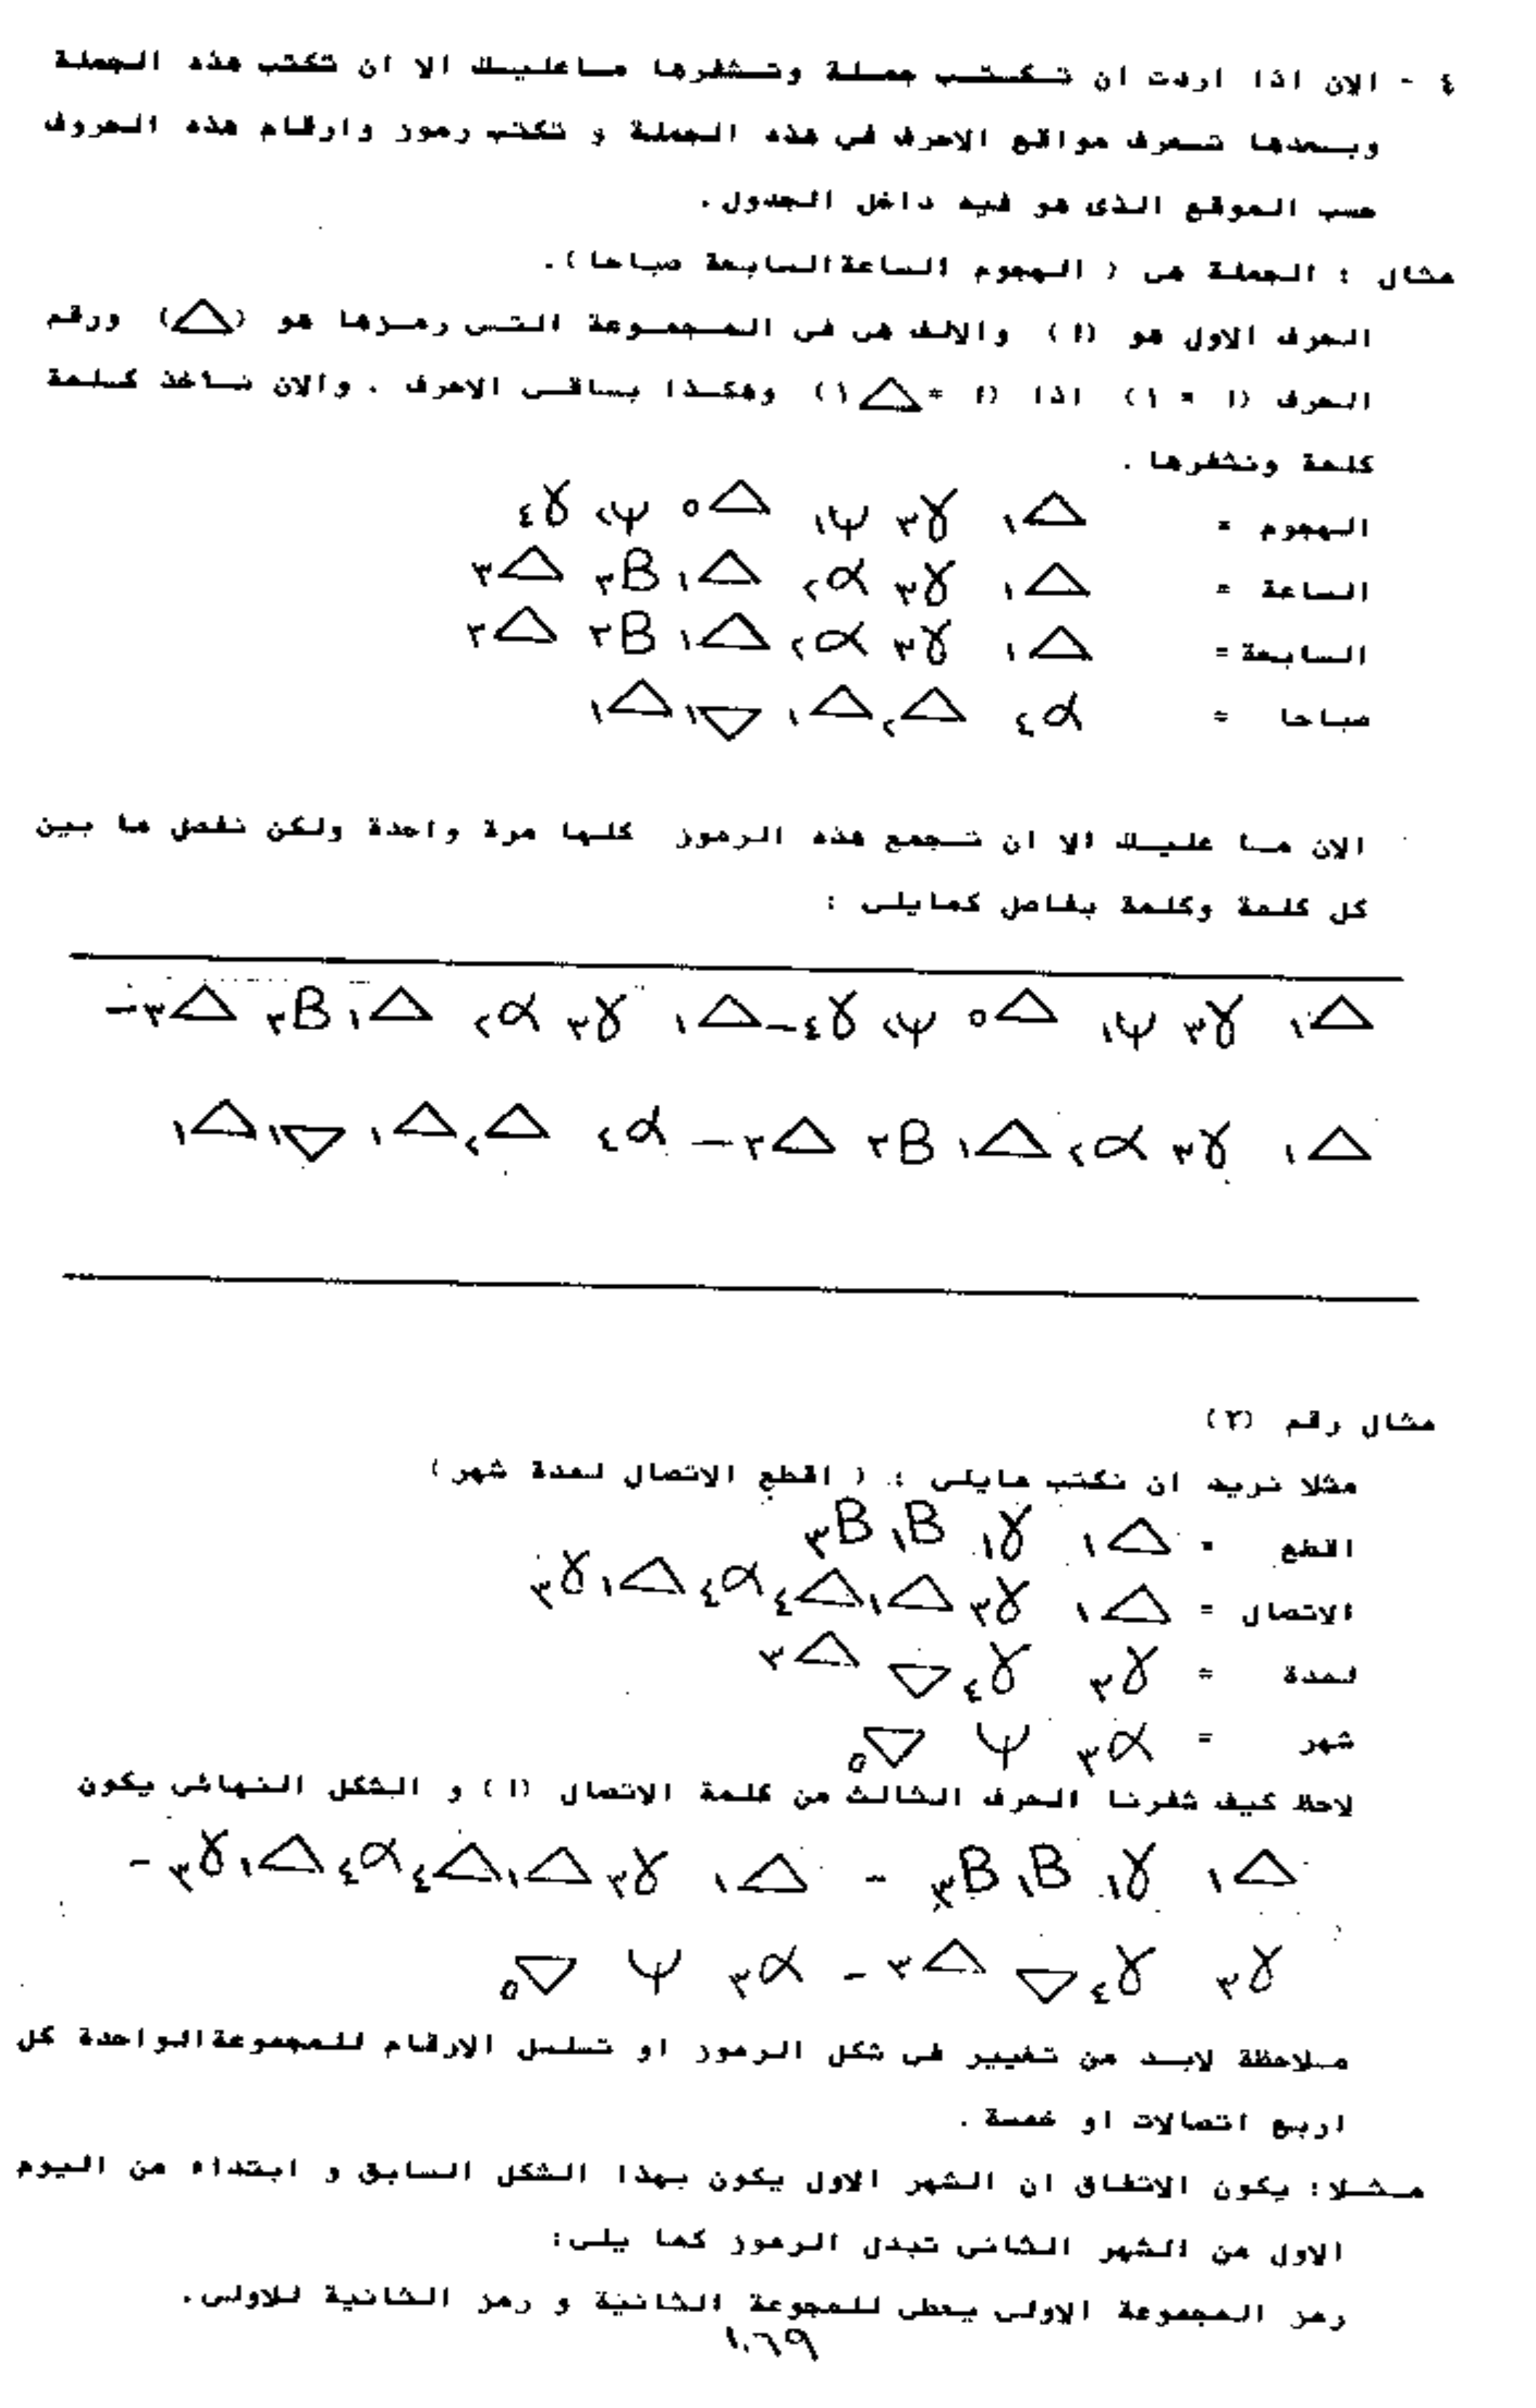 ٤ - الان اذا اردت ان تكتب جملة وتشفرها ماعليك الا ان تكتب هذه الجملة
وبعدها تعرف مواقع الاحرف فى هذه الجملة و تكتب رموز وارقام هذه الحروف
حسب الموقع الذى هو فيه داخل الجدول .
مثال : الجملة هى ( الهجوم الساعة السابعة صباحا ) .
الحرف الاول هو (ا) والالف هى فى المجموعة التى رمزها هو (△) ورقم
الحرف (ا = ١) اذا (ا = △١) وهكذا بباقى الاحرف . والان نأخذ كلمة
كلمة ونشفرها .
الهجوم = △١ γ٣ ψ١ △٥ ψ٢ γ٤
الساعة = △١ γ٣ α٢ △١ B٣ △٣
السابعة = △١ γ٣ α٢ △١ B٣ △٣
صباحا = α٤ △٢ △١ ▽١ △١
الان ما عليك الا ان تجمع هذه الرموز كلها مرة واحدة ولكن نفصل ما بين
كل كلمة وكلمة بفاصل كمايلى :
△١ γ٣ ψ١ △٥ ψ٢ γ٤ – △١ γ٣ α٢ △١ B٣ △٣ –
△١ γ٣ α٢ △١ B٣ △٣ – α٤ △٢ △١ ▽١ △١
مثال رقم (٢)
مثلا نريد ان نكتب مايلى : ( اقطع الاتصال لمدة شهر )
اقطع = △١ γ١ B١ B٣
الاتصال = △١ γ٣ △١ △٤ α٤ △١ γ٣
لمدة = γ٣ γ٤ ▽ △٣
شهر = α٣ ψ ▽٥
لاحظ كيف شفرنا الحرف الثالث من كلمة الاتصال (ا) و الشكل النهائى يكون
△١ γ١ B١ B٣ – △١ γ٣ △١ △٤ α٤ △١ γ٣ –
γ٣ γ٤ ▽ △٣ – α٣ ψ ▽٥
ملاحظة لابد من تغيير فى شكل الرموز او تسلسل الارقام للمجموعة الواحدة كل
اربع اتصالات او خمسة .
مثلا : يكون الاتفاق ان الشهر الاول يكون بهذا الشكل السابق و ابتداء من اليوم
الاول من الشهر الثانى تبدل الرموز كما يلى :
رمز المجموعة الاولى يعطى للمجوعة الثانية و رمز الثانية للاولى .